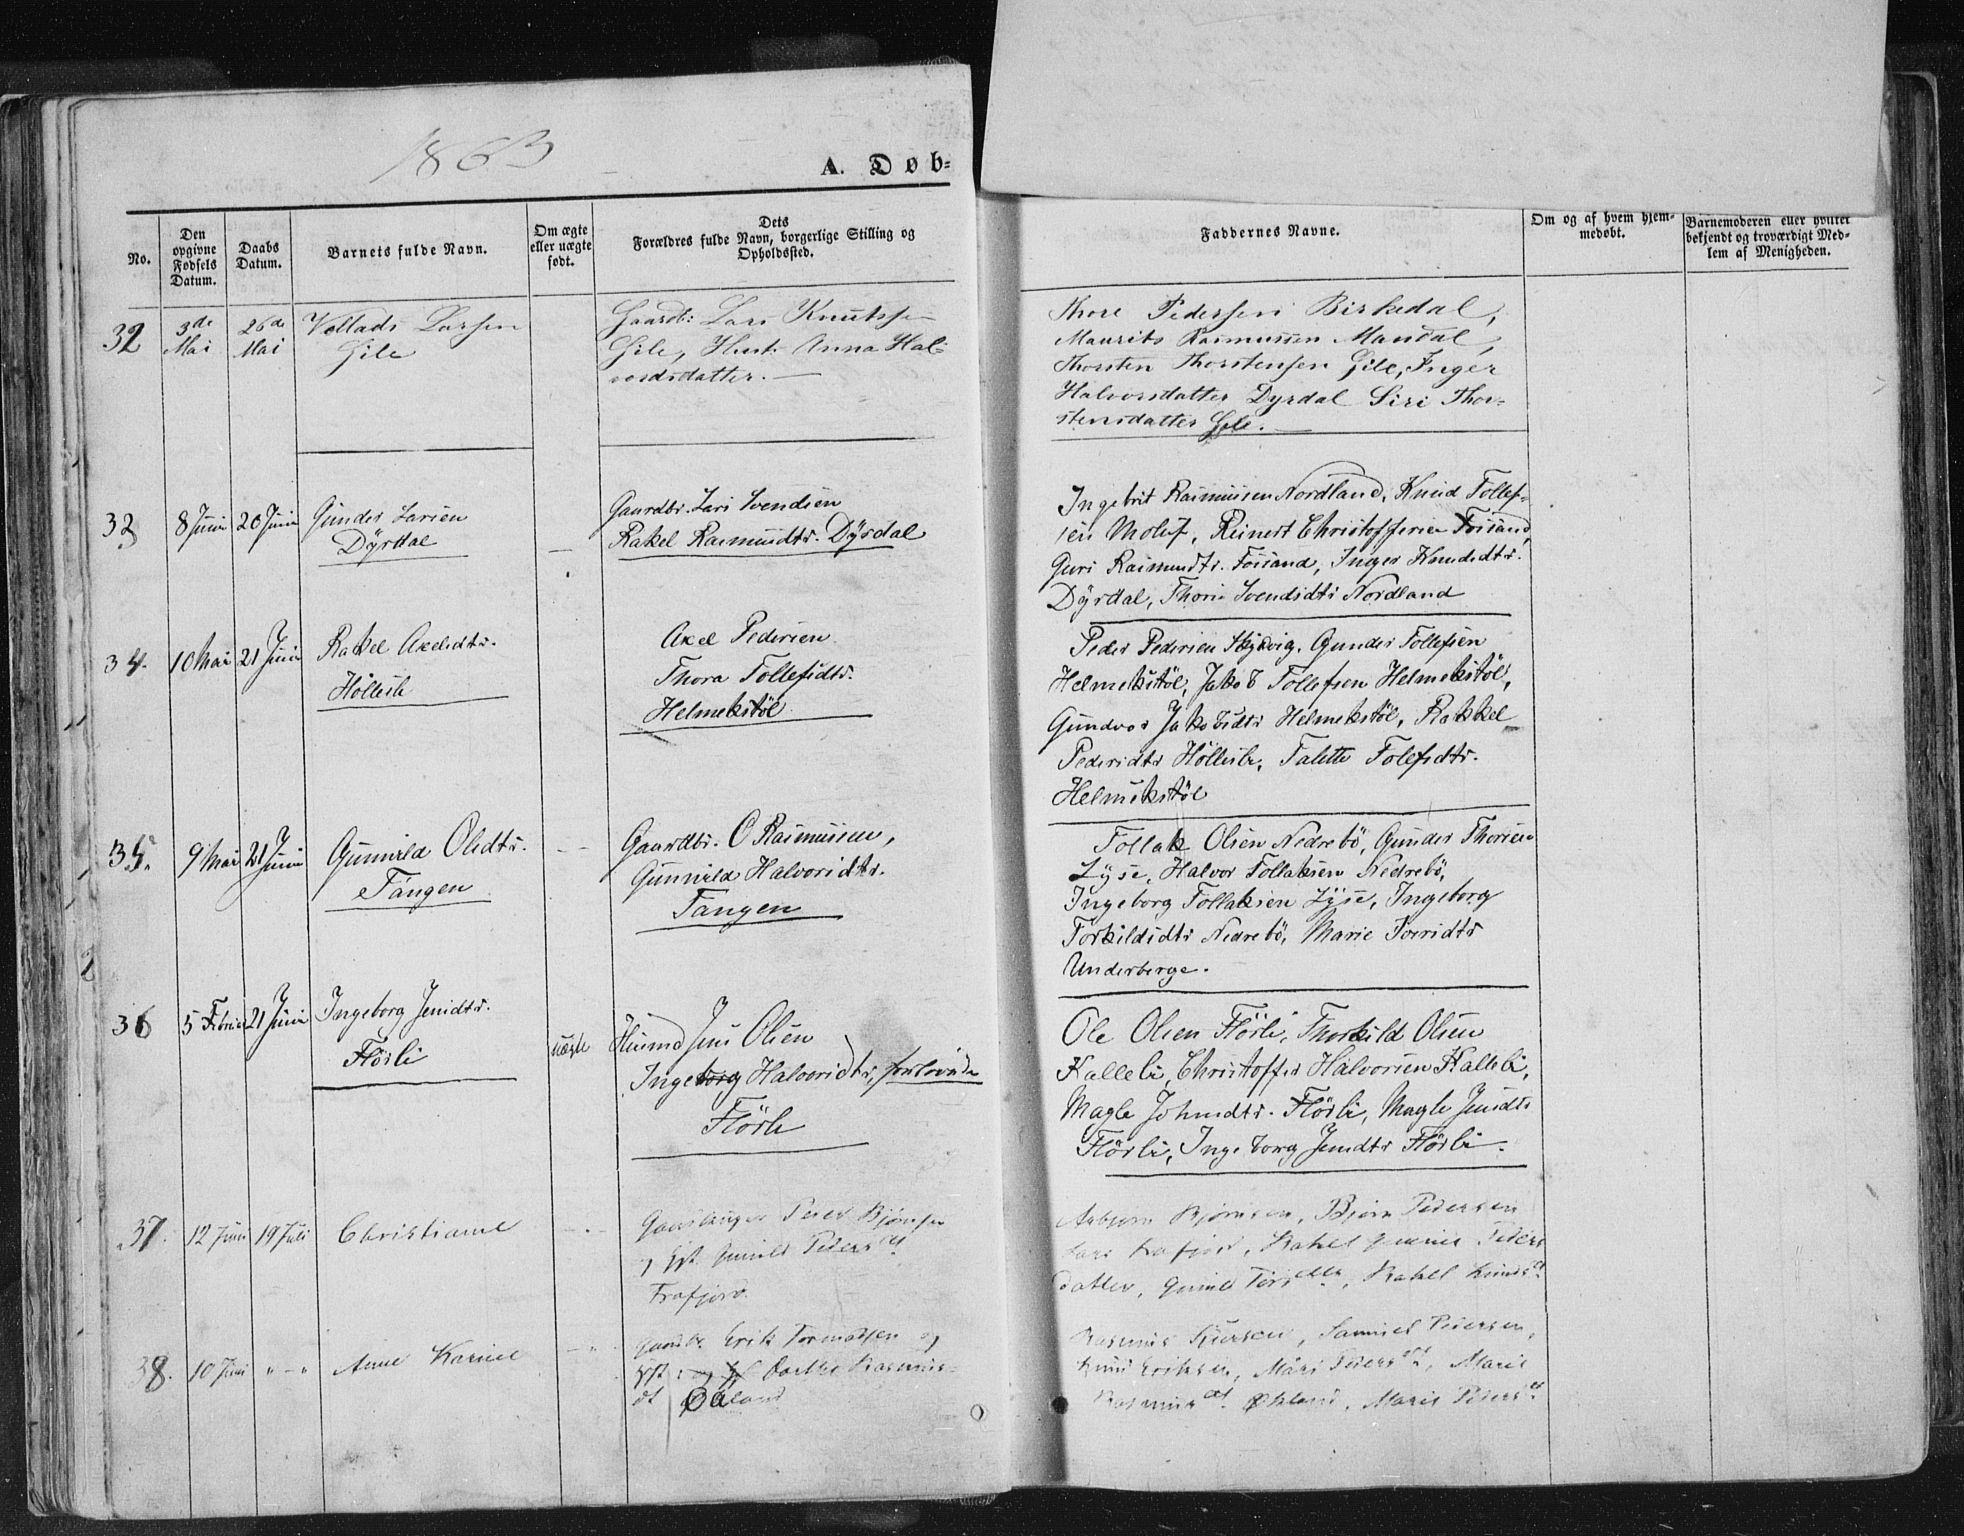 1863
A. Døb-
No.
Den opgivne Fødsels Datum.
Daabs Datum.
Barnets fulde Navn.
Om ægte eller uægte født.
Dets Forældres fulde Navn, borgerlige Stilling og Opholdssted.
Faddernes Navne.
Om og af hvem hjemmedøbt.
Barnemoderen eller hvilket bekjendt og troværdigt Medlem af Menigheden.
32
3de Mai
26de Mai
Larsen
Gile
Gaardb: Lars Knutsse
Gile, Hust. Anna Hal-
vordsdatter.
Thore Pedersen Birkedal,
Maurits Rasmussen Mandal,
Thorsten Thorstensen Gile, Inger
Halvorsdatter Dyrdal Siri Thor-
stensdatter Gile.
33
8 Juni
20 Juni
Gunder Larsen
Dÿrdal
Gaardbr. Lars Svendsen
Rakel Rasmusdtr. Dÿrdal
Ingebrit Rasmussen Nordland, Knud Tollef-
sen Molaug, Reinert Christoffersen Fossand,
Guri Rasmusdtr. Fossand, Inger Knudsdtr.
Dÿrdal, Svendsdtr Nordland
34.
10 Mai
21 Juni
Rakel Axelsdtr.
Hollesli
Axel Pedersen
Thora Tollefsdtr.
Helmekstöl
Peder Pedersen Gunder Tollefsen
Helmekstöl, Jakob Tollefsen Helmekstöl,
Gundvor Jakobsdtr Helmekstöl, Rakkel
Pedersdtr Hollesli, Talette Tolefsdtr.
Helmekstöl
35.
9 Mai
21 Juni
Gunnild Olsdtr.
Tangen
Gaardbr. O Rasmussen,
Gunnild Halvorsdtr.
Tangen
Tollak Olsen Nedrebö, Gunder Thorsen
Lÿse, Halvor Tollaksen Nedrebö,
Ingeborg Tollaksen Lÿse, Ingeborg
Torkildsdtr Nedrebö, Marie Iversdtr
Underberge.
36
5 Februar
21 Juni
Ingeborg Jensdtr.
Flörli
uægte
Huusmd Jens Olsen
Ingeborg Halvorsdtr, forlovede
Flörli
Ole Olsen Flörli, Thorkild Olsen
Kalleli, Christoffer Halvorsen Kalleli,
Magle Johnsdtr. Flörli, Magle Jensdtr
Flörli, Ingeborg Jensdtr Flörli.
37.
12 Juni
19 Juli
Christiane
Peder Bjørnsen
Gunild Pedersdt
Frafjord.
Asbjørn Bjørnsen, Bjørn Pedersen
Lars Frafjord, Rakel Peders
datter, Gunild, Rakel Knudsdt
38.
10 Juni
" - "
Anne Karine
Gaardbr Erik Tormodsen og
Hst: Dorthe Rasmus-
dt Øaland
Rasmus Samuel Pedersen,
Knud Eriksen, Mari Pedersdt, Marie
Rasmusdt. Økland, Maris Pedersdt